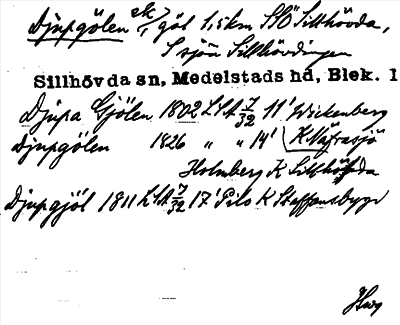 Djupgölen ek, göl 1,5 km SSÖ Sillhövda,
i sjön Sillhövdingen
Sillhövda sn, Medelstads hd, Blek. 1
Djupa Gjölen 1802 LSA 7/32 11' Wickenberg
Djupgölen 1826 " " 14' K Näfrasjö
Holmberg K Sillhöfda
Djupgjöl 1811 LSA 7/32 17' Pilo K Steffansbygd